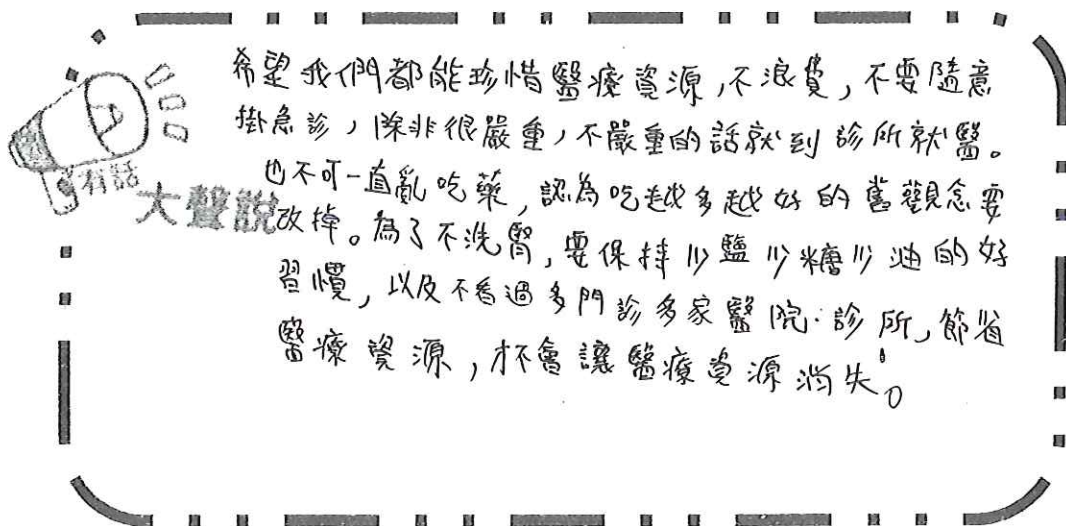 希望我們都能珍惜醫療資源,不浪費,不要隨意
掛急診,除非很嚴重,不嚴重的話就到診所就醫。
也不可一直亂吃藥,認為吃越多越好的舊觀念要
改掉。為了不洗腎,要保持少鹽少糖少油的好
習慣,以及不看過多門診多家醫院.診所,節省
醫療資源,才不會讓醫療資源消失。
有話
大聲說